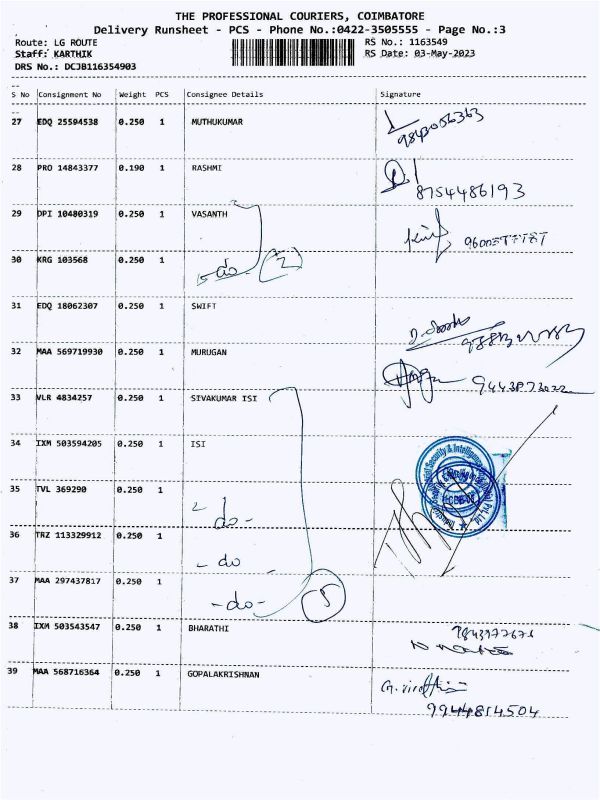 THE PROFESSIONAL COURIERS, COIMBATORE
Delivery Runsheet - PCS - Phone No.:0422-3505555 - Page No.:3
Route: LG ROUTE RS No.: 1163549
Staff: KARTHIK RS Date: 03-May-2023
DRS No.: DCJB116354903
S No Consignment No Weight PCS Consignee Details Signature
27 EDQ 25594538 0.250 1 MUTHUKUMAR 9843056363
28 PRO 14843377 0.190 1 RASHMI 8754486193
29 DPI 10480319 0.250 1 VASANTH
30 KRG 103568 0.250 1 do 2
31 EDQ 18062307 0.250 1 SWIFT
32 MAA 569719930 0.250 1 MURUGAN
33 VLR 4834257 0.250 1 SIVAKUMAR ISI
34 IXM 503594205 0.250 1 ISI
35 TVL 369290 0.250 1 do-
36 TRZ 113329912 0.250 1 - do
37 MAA 297437817 0.250 1 -do- 5
38 IXM 503543547 0.250 1 BHARATHI
39 MAA 568716364 0.250 1 GOPALAKRISHNAN
9944814504